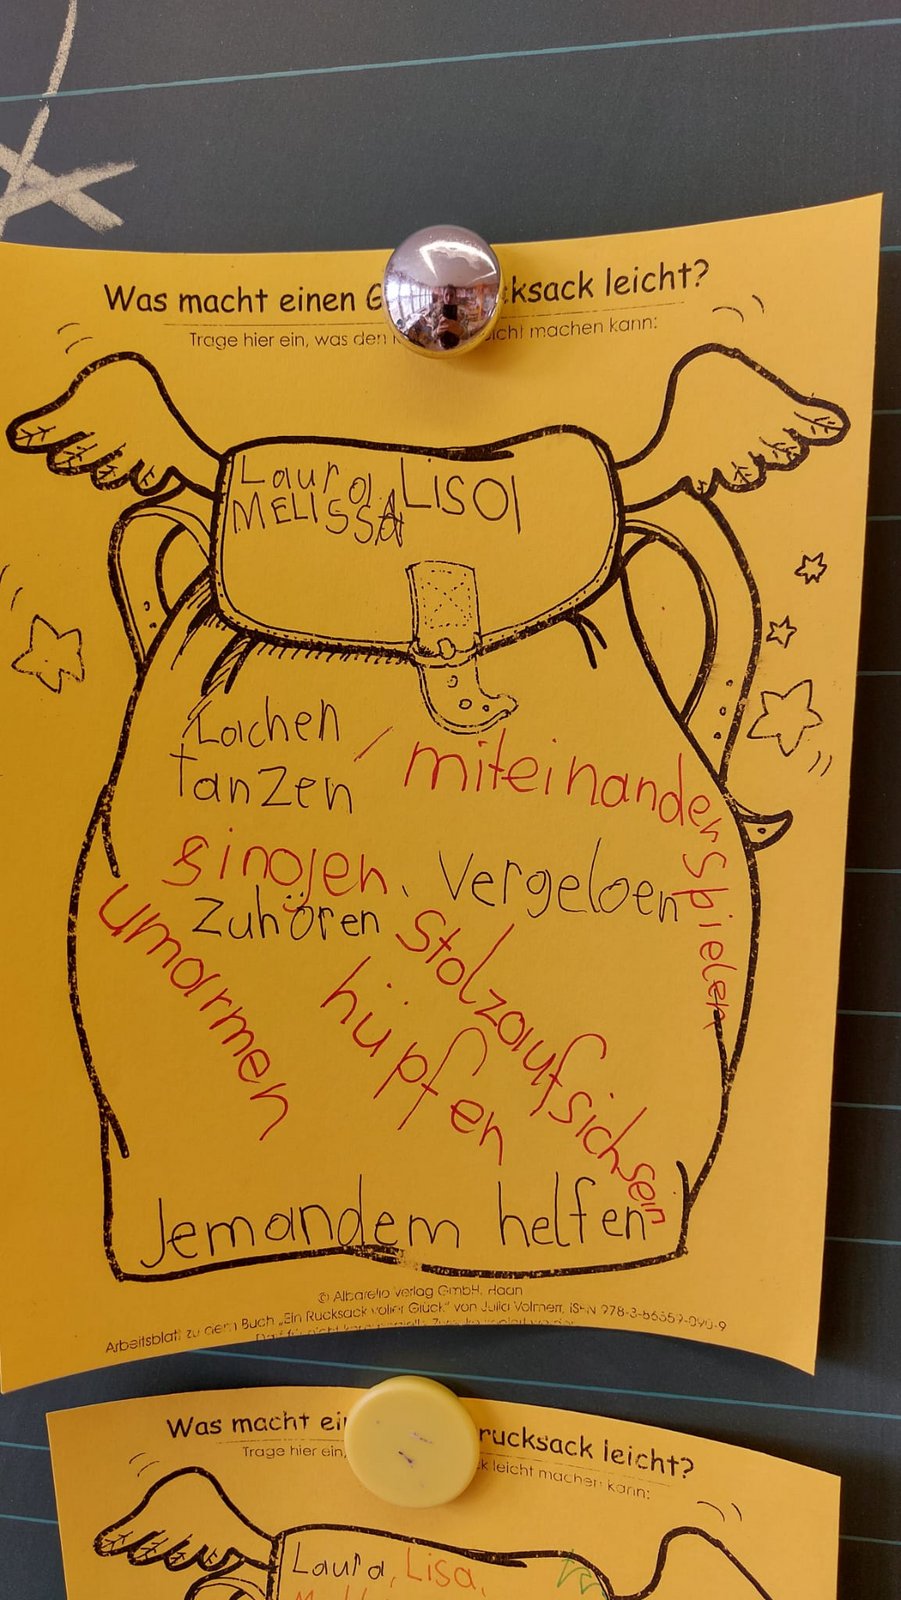 Was macht einen G ksack leicht?
Trage hier ein, was den leicht machen kann:
Laura, Lisa
MELISSA
Lachen
tanzen
miteinander spielen
singen. Vergeben
Zuhören
umarmen
Stolz auf sich sein
hüpfen
Jemandem helfen
© Albarello Verlag GmbH, Haan
Arbeitsblatt zu dem Buch „Ein Rucksack voller Glück" von Julia Volmert, ISBN 978-3-86559-090-9
Was macht ei rucksack leicht?
Trage hier ein, leicht machen kann:
Laura, Lisa,